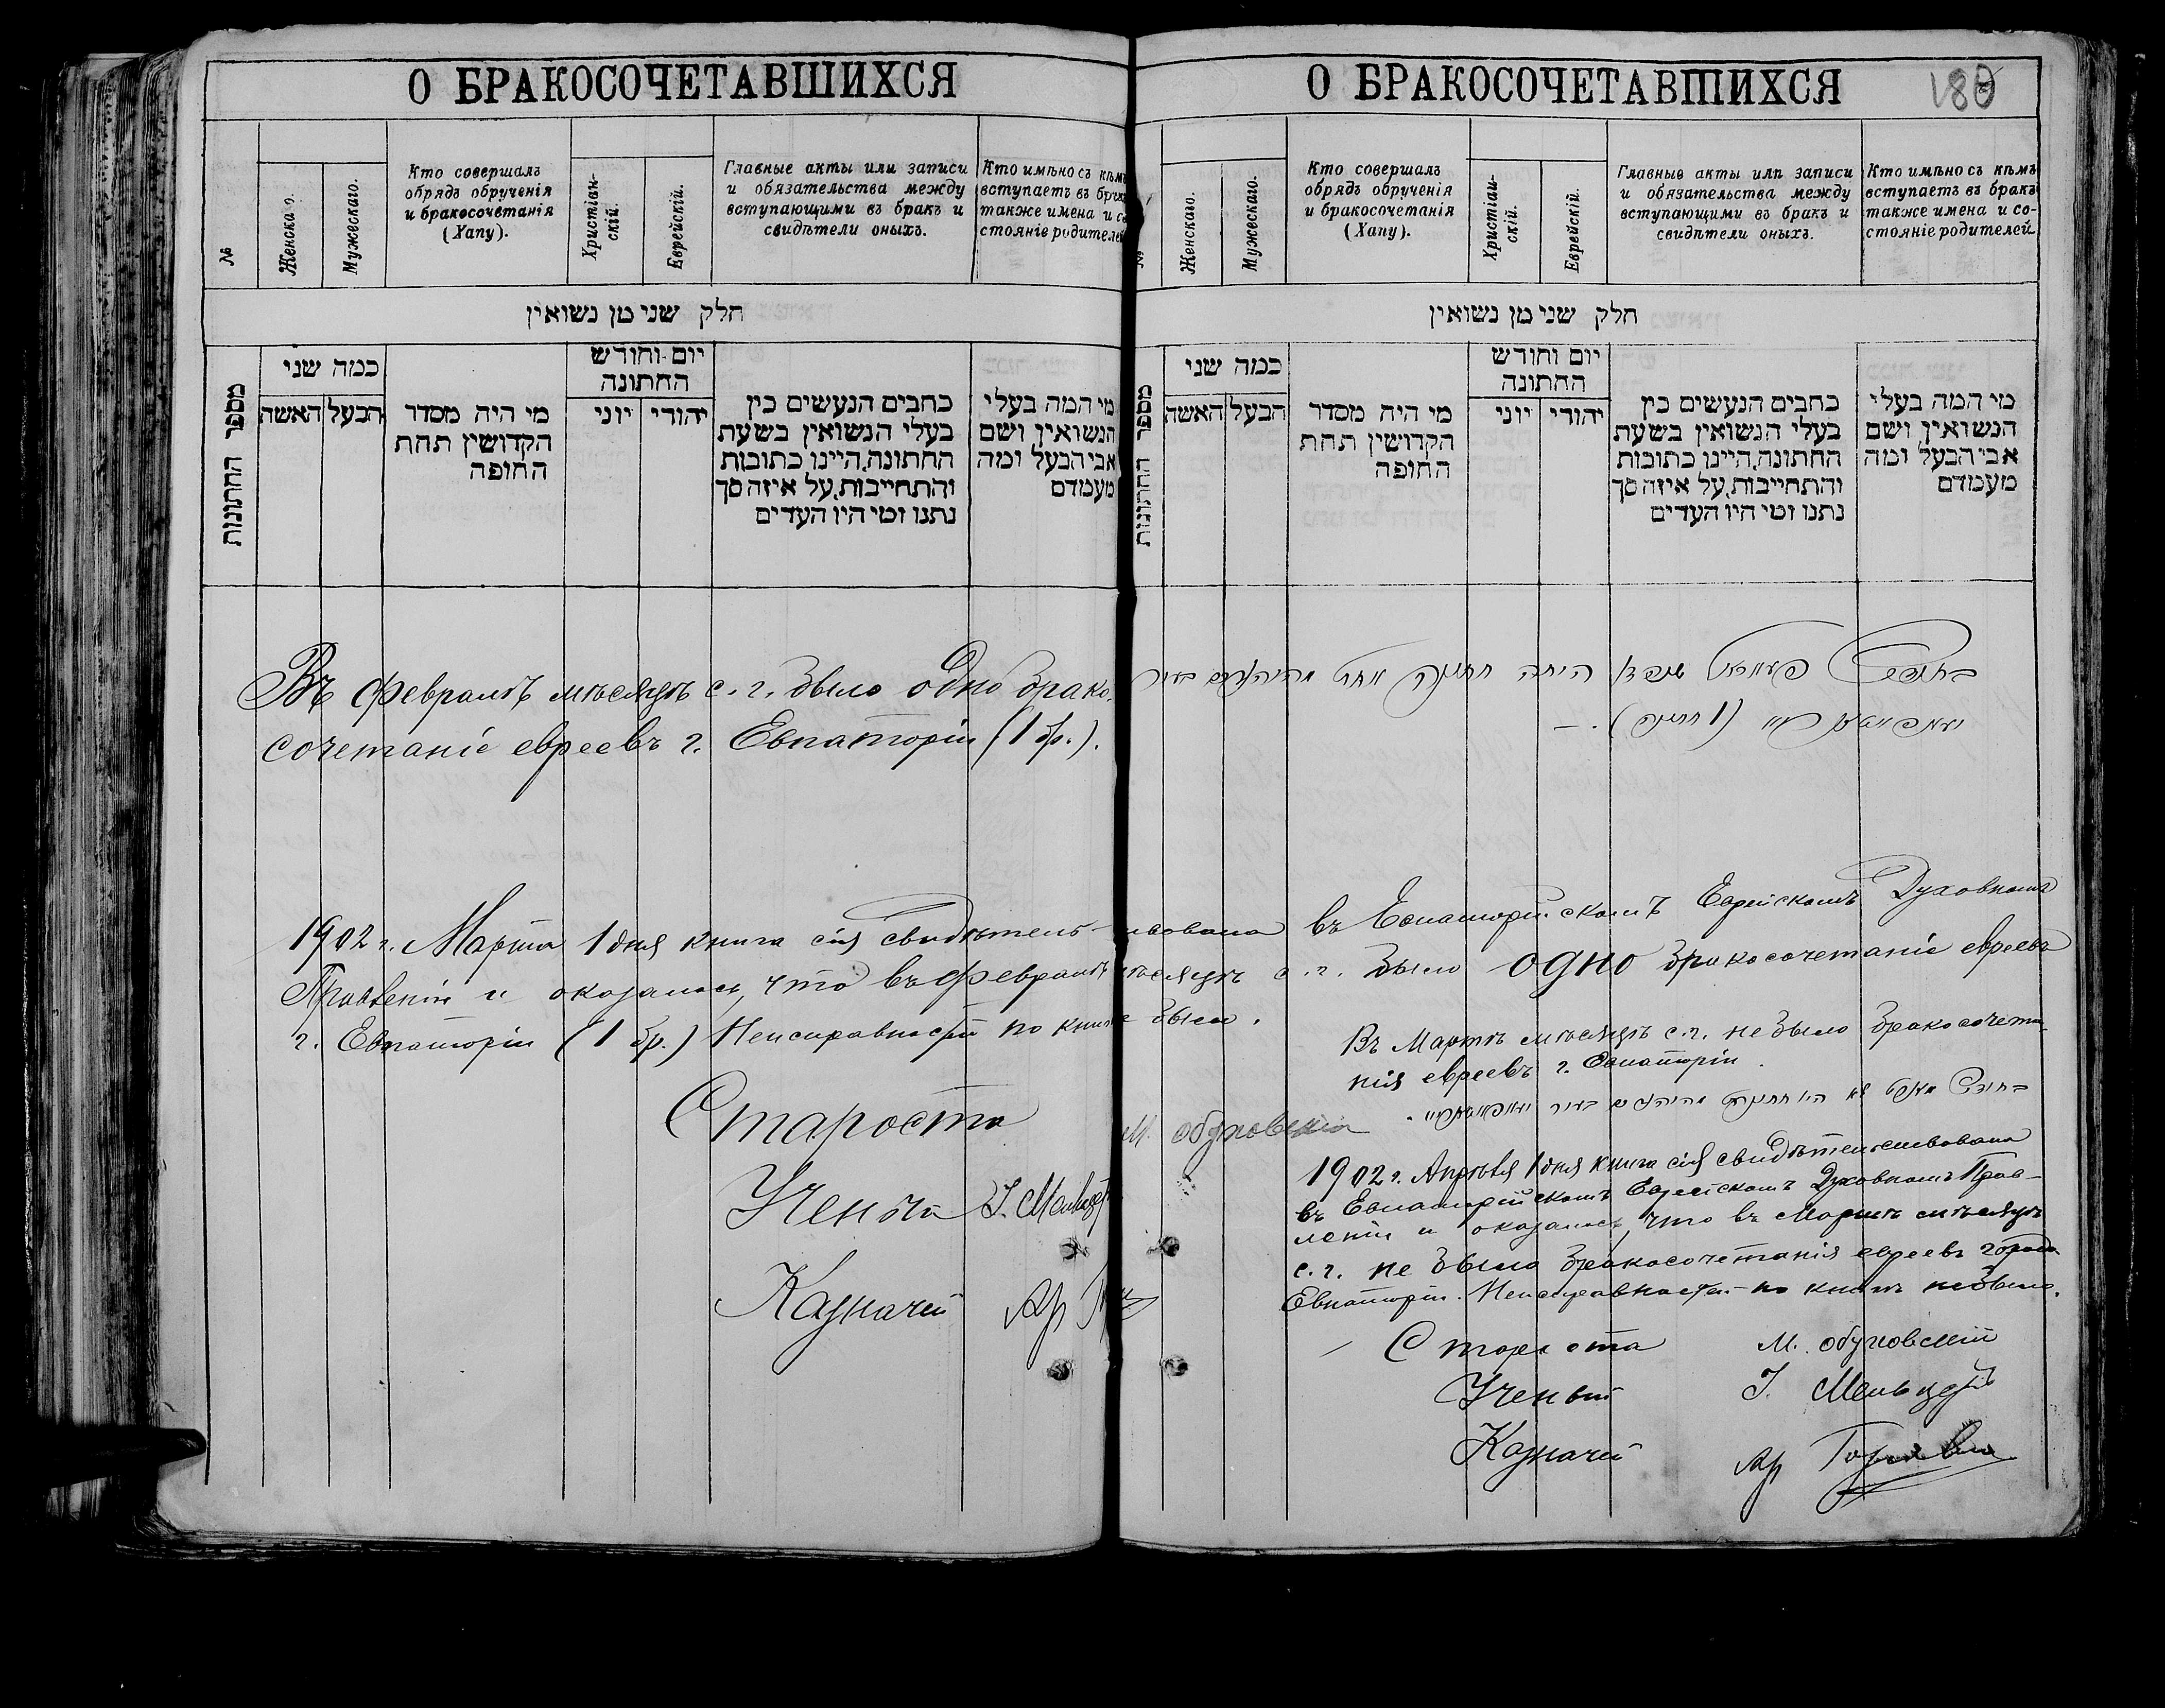 О БРАКОСОЧЕТАВШИХСЯ
№
Женскаго.
Мужескаго.
Кто совершалъ
обрядъ обрученія
и бракосочетанія
(Хапу).
Христіан-
скій.
Еврейскій.
Главные акты или записи
и обязательства между
вступающими въ бракъ и
свидѣтели оныхъ.
Кто имѣно съ кѣмъ
вступаетъ въ бракъ
также имена и со
стояніе родителей
חלק שני מן נשואין
מספר החתונות
כמה שני
האשה
הבעל
מי היה מסדר
הקדושין תחת
החופה
יום וחודש
החתונה
יוני
יהודי
כתבים הנעשים בין
בעלי הנשואין בשעת
החתונה, היינו כתובות
והתחייבות, על איזה סך
נתנו ומי היו העדים
מי המה בעלי
הנשואין ושם
אבי הבעל ומה
מעמדם
Въ Февралѣ мѣсяцѣ с. г. было одно брако-
сочетаніе евреевъ г. Евпаторіи (1 бр.).
О БРАКОСОЧЕТАВШИХСЯ
180
№
Женскаго.
Мужескаго.
Кто совершалъ
обрядъ обрученія
и бракосочетанія
(Хапу).
Христіан-
скій.
Еврейскій.
Главные акты или записи
и обязательства между
вступающими въ бракъ и
свидѣтели оныхъ.
Кто имѣно съ кѣмъ
вступаетъ въ бракъ
также имена и со-
стояніе родителей
חלק שני מן נשואין
מספר החתונות
כמה שני
האשה
הבעל
מי היה מסדר
הקדושין תחת
החופה
יום וחודש
החתונה
יוני
יהודי
כתבים הנעשים בין
בעלי הנשואין בשעת
החתונה, היינו כתובות
והתחייבות, על איזה סך
נתנו ומי היו העדים
מי המה בעלי
הנשואין ושם
אבי הבעל ומה
מעמדם
היתה חתונה אחת מהיהודים בעיר
יעוופאטאריי (1 חתונה). —
1902 г. Марта 1 дня книга сія свидѣтельствована въ Евпаторійскомъ Еврейскомъ Духовномъ
Правленіи и оказалось, что въ Февралѣ мѣсяцѣ с. г. было одно бракосочетаніе евреевъ
г. Евпаторіи (1 бр.) Неисправностей по книгѣ было.
Староста М. Обуховскій
Ученый І. Мельцеръ
Казначей Ар
Въ Мартѣ мѣсяцѣ с. г. не было бракосочета-
нія евреевъ г. Евпаторіи.
בחודש מארט לא היו חתונות מהיהודים בעיר יעוופאטאריי.
1902 г. Апрѣля 1 дня книга сія свидѣтельствована
въ Евпаторійскомъ Еврейскомъ Духовномъ Прав-
леніи и оказалось, что въ Мартѣ мѣсяцѣ
с. г. не было бракосочетанія евреевъ города
Евпаторіи. Неисправностей по книгѣ не было.
Староста М. Обуховскій
Ученый І. Мельцеръ
Казначей Ар